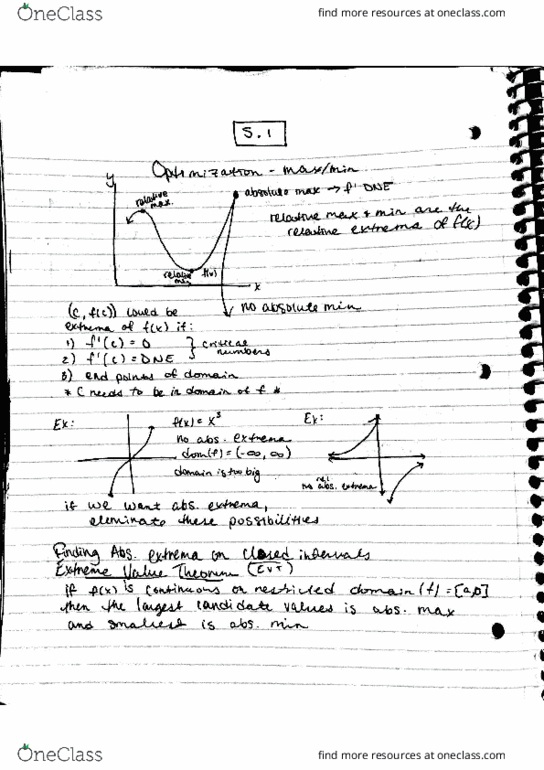 OneClass
find more resources at oneclass.com
5.1
Optimization - max/min
y
relative max.
absolute max → f' DNE
relative max + min are the
relative extrema of f(x)
relative min
f(x)
x
no absolute min
(c, f(c)) could be
extrema of f(x) if:
1) f'(c) = 0
2) f'(c) = DNE
} critical numbers
3) end points of domain
* C needs to be in domain of f *
Ex:
f(x) = x³
no abs. extrema
dom(f) = (-∞, ∞)
domain is too big
Ex:
rel
no abs. extrema
if we want abs. extrema,
eleminate these possibilities
Finding Abs. extrema on closed intervals
Extreme Value Theorem (EVT)
if f(x) is continuous or restricted domain (f) = [a,b]
then the largest candidate values is abs. max
and smallest is abs. min
OneClass
find more resources at oneclass.com